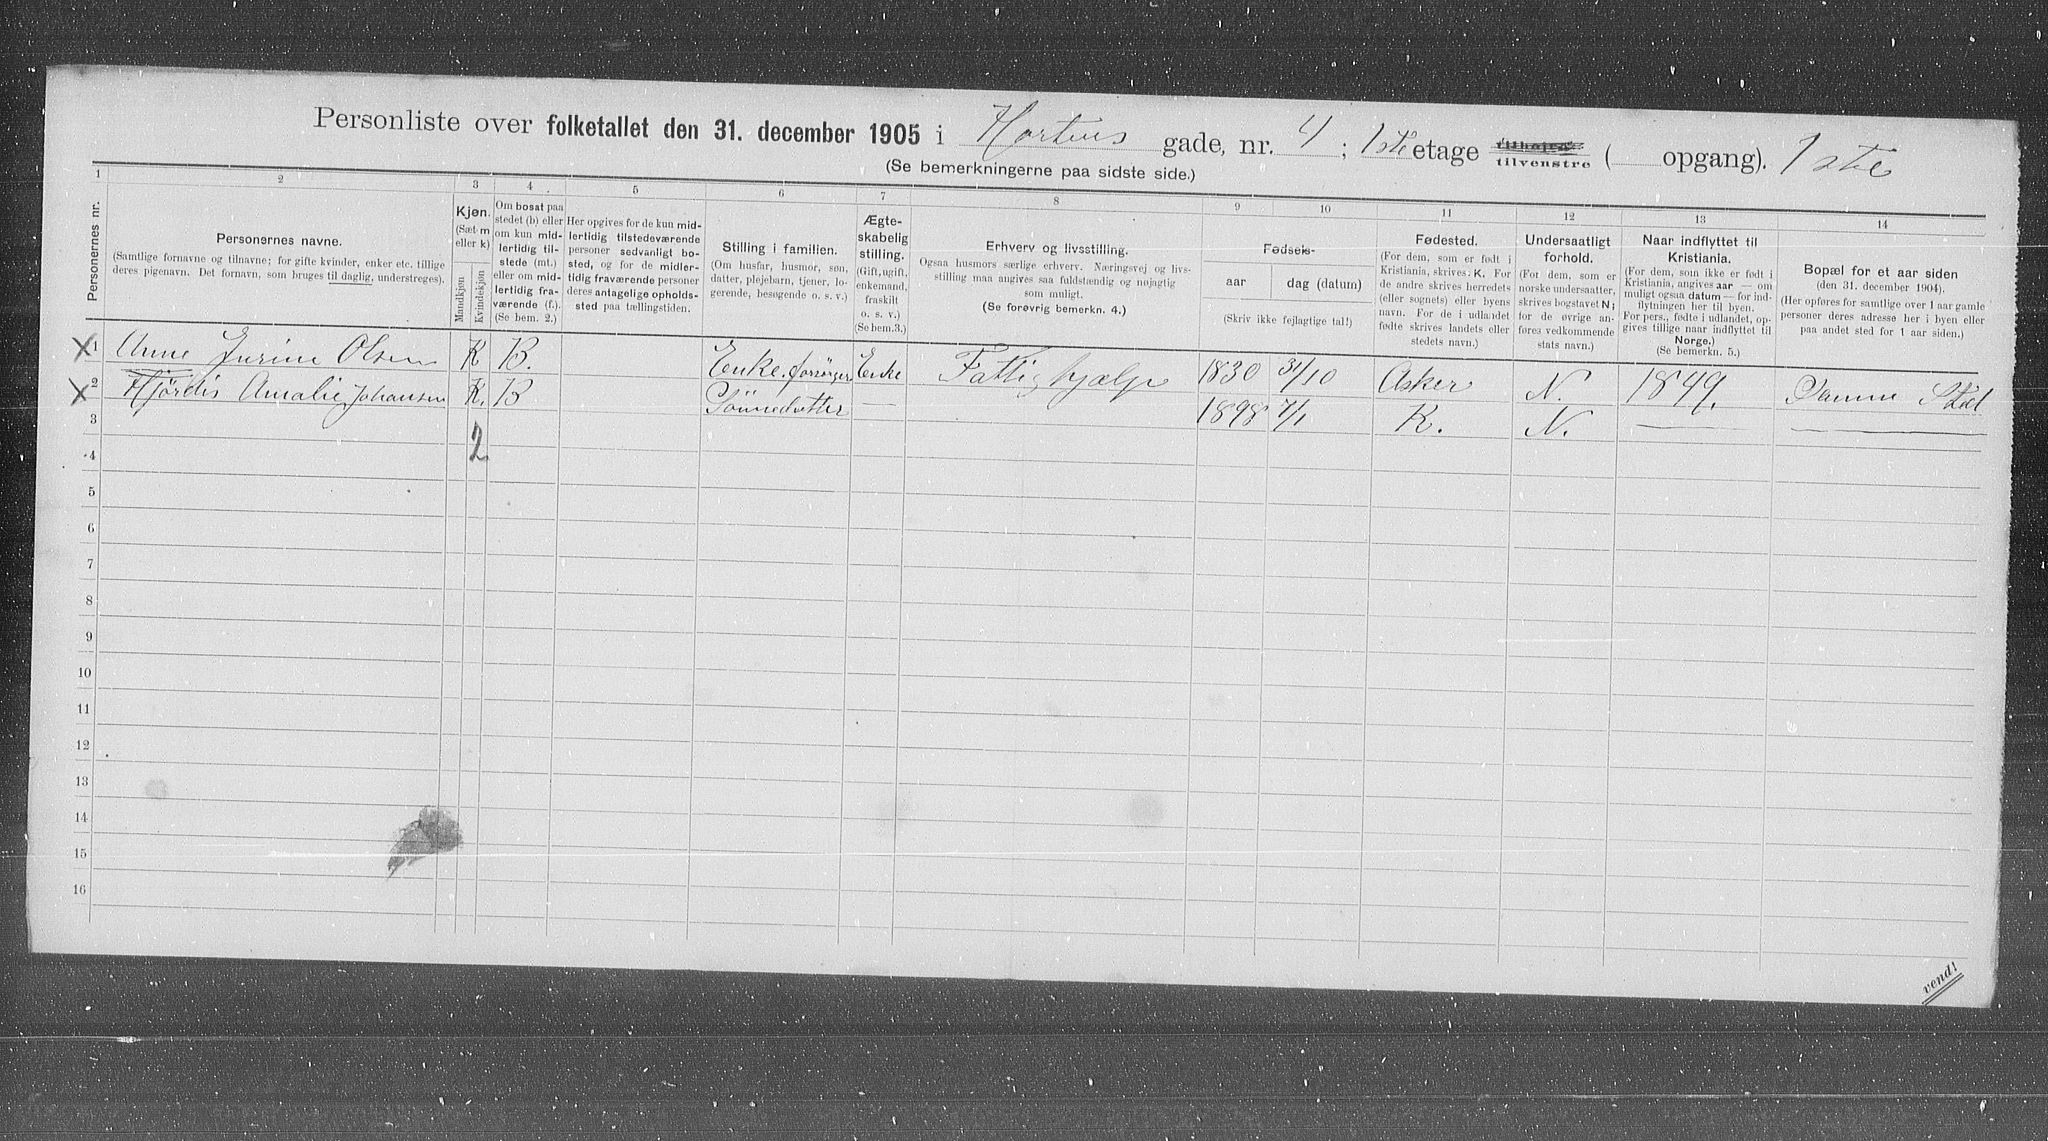 Personliste over folketallet den 31. december 1905 i Hortens gade, nr. 4; 1ste etage tilhøire tilvenstre ( opgang). 1ste
(Se bemerkningerne paa sidste side.)
1 2 3 4 5 6 7 8 9 10 11 12 13 14
Personernes nr.
Personernes navne.
(Samtlige fornavne og tilnavne; for gifte kvinder, enker etc. tillige
deres pigenavn. Det fornavn, som bruges til daglig, understreges).
Kjøn.
(Sæt m
eller k)
Mandkjøn
Kvindekjøn
Om bosat paa
stedet (b) eller
om kun mid-
lertidig til-
stede (mt.)
eller om mid-
lertidig fra-
værende (f.).
(Se bem. 2.)
Her opgives for de kun mid-
lertidig tilstedeværende
personer sedvanlig bo-
sted, og for de midler-
tidig fraværende personer
deres antagelige opholds-
sted paa tællingstiden.
Stilling i familien.
(Om husfar, husmor, søn,
datter, plejebarn, tjener, lo-
gerende, besøgende o. s. v.)
Ægte-
skabelig
stilling.
(Gift, ugift,
enkemand,
fraskilt
o. s. v.)
(Se bem. 3.)
Erhverv og livsstilling.
Ogsaa husmors særlige erhverv. Næringsvej og livs-
stilling maa angives saa fuldstændig og nøjagtig
som muligt.
(Se forøvrig bemerkn. 4.)
Fødsels-
aar dag (datum)
(Skriv ikke fejlagtige tal!)
Fødested.
(For dem, som er født i
Kristiania, skrives: K. For
de andre skrives herredets
(eller sognets) eller byens
navn. For de i udlandet
fødte skrives landets eller
stedets navn.)
Undersaatligt
forhold.
(For dem, som er
norske undersaatter,
skrives bogstavet N;
for de øvrige an-
føres vedkommende
stats navn.)
Naar indflyttet til
Kristiania.
(For dem, som ikke er født i
Kristiania, angives aar — om
muligt ogsaa datum — for ind-
flytningen her til byen.
For pers., fødte i udlandet, op-
gives tillige naar indflyttet til
Norge.)
(Se bemerkn. 5.)
Bopæl for et aar siden
(den 31. december 1904).
(Her opføres for samtlige over 1 aar gamle
personer deres adresse her i byen eller
paa andet sted for 1 aar siden.)
X 1 Anne Jurine Olsen K B. Enke. forsørger Enke Fattighjælp 1830 31/10 Asker N. 1849. Samme Sted
X 2 Hjördis Amalie Johansen K. B Sönnedatter — 1898 7/1 K. N. — —
3
2
4
5
6
7
8
9
10
11
12
13
14
15
16
vend!